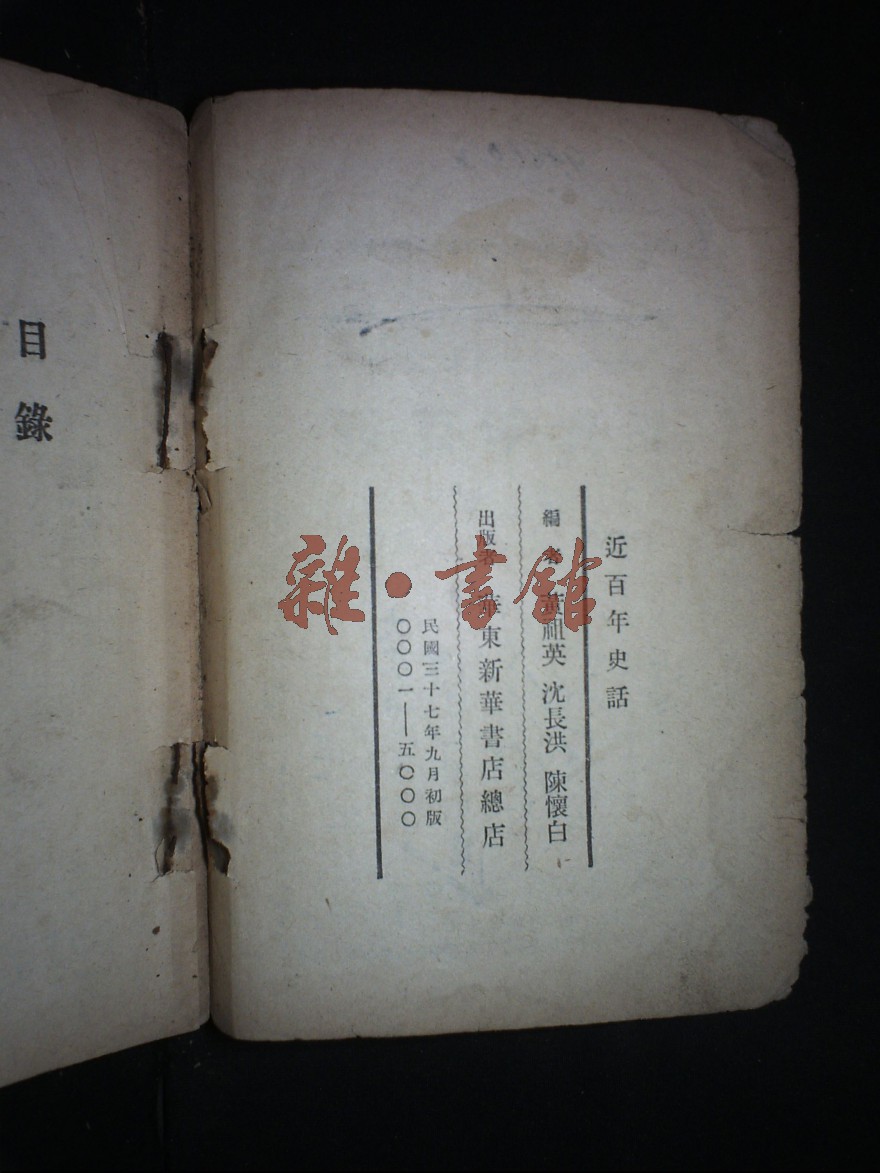 近百年史話
編者 黃祖英 沈長洪 陳懷白
出版者 華東新華書店總店
民國三十七年九月初版
〇〇〇一——五〇〇〇
目錄
雜·書館